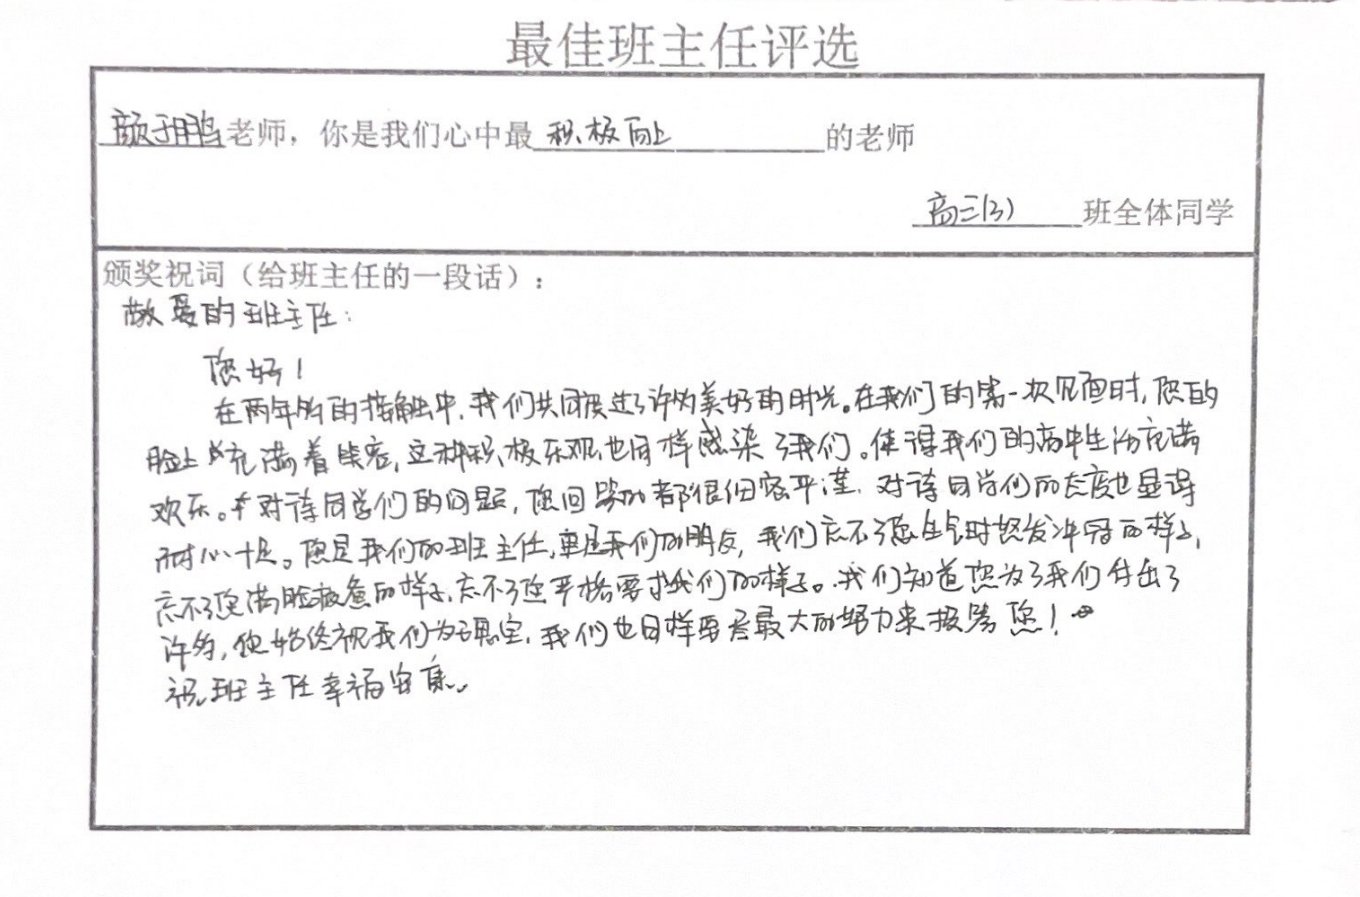 最佳班主任评选
颜子鹏老师，你是我们心中最积极向上的老师
高三(3)班全体同学
颁奖祝词（给班主任的一段话）：
敬爱的班主任：
您好！
在两年多的接触中，我们共同度过了许多美好的时光。在我们的第一次见面时，您的
脸上充满着笑容，这种积极乐观也同样感染了我们。使得我们的高中生活充满
欢乐。对待同学们的问题，您回答的都很细容严谨，对待同学们的态度也显得
耐心十足。您是我们的班主任，更是我们的朋友，我们忘不了您生气时怒发冲冠的样子，
忘不了您满脸疲惫的样子，忘不了您严格要求我们的样子。我们知道您为了我们付出了
许多，您始终视我们为珍宝，我们也同样要尽最大的努力来报答您！
祝班主任幸福安康。